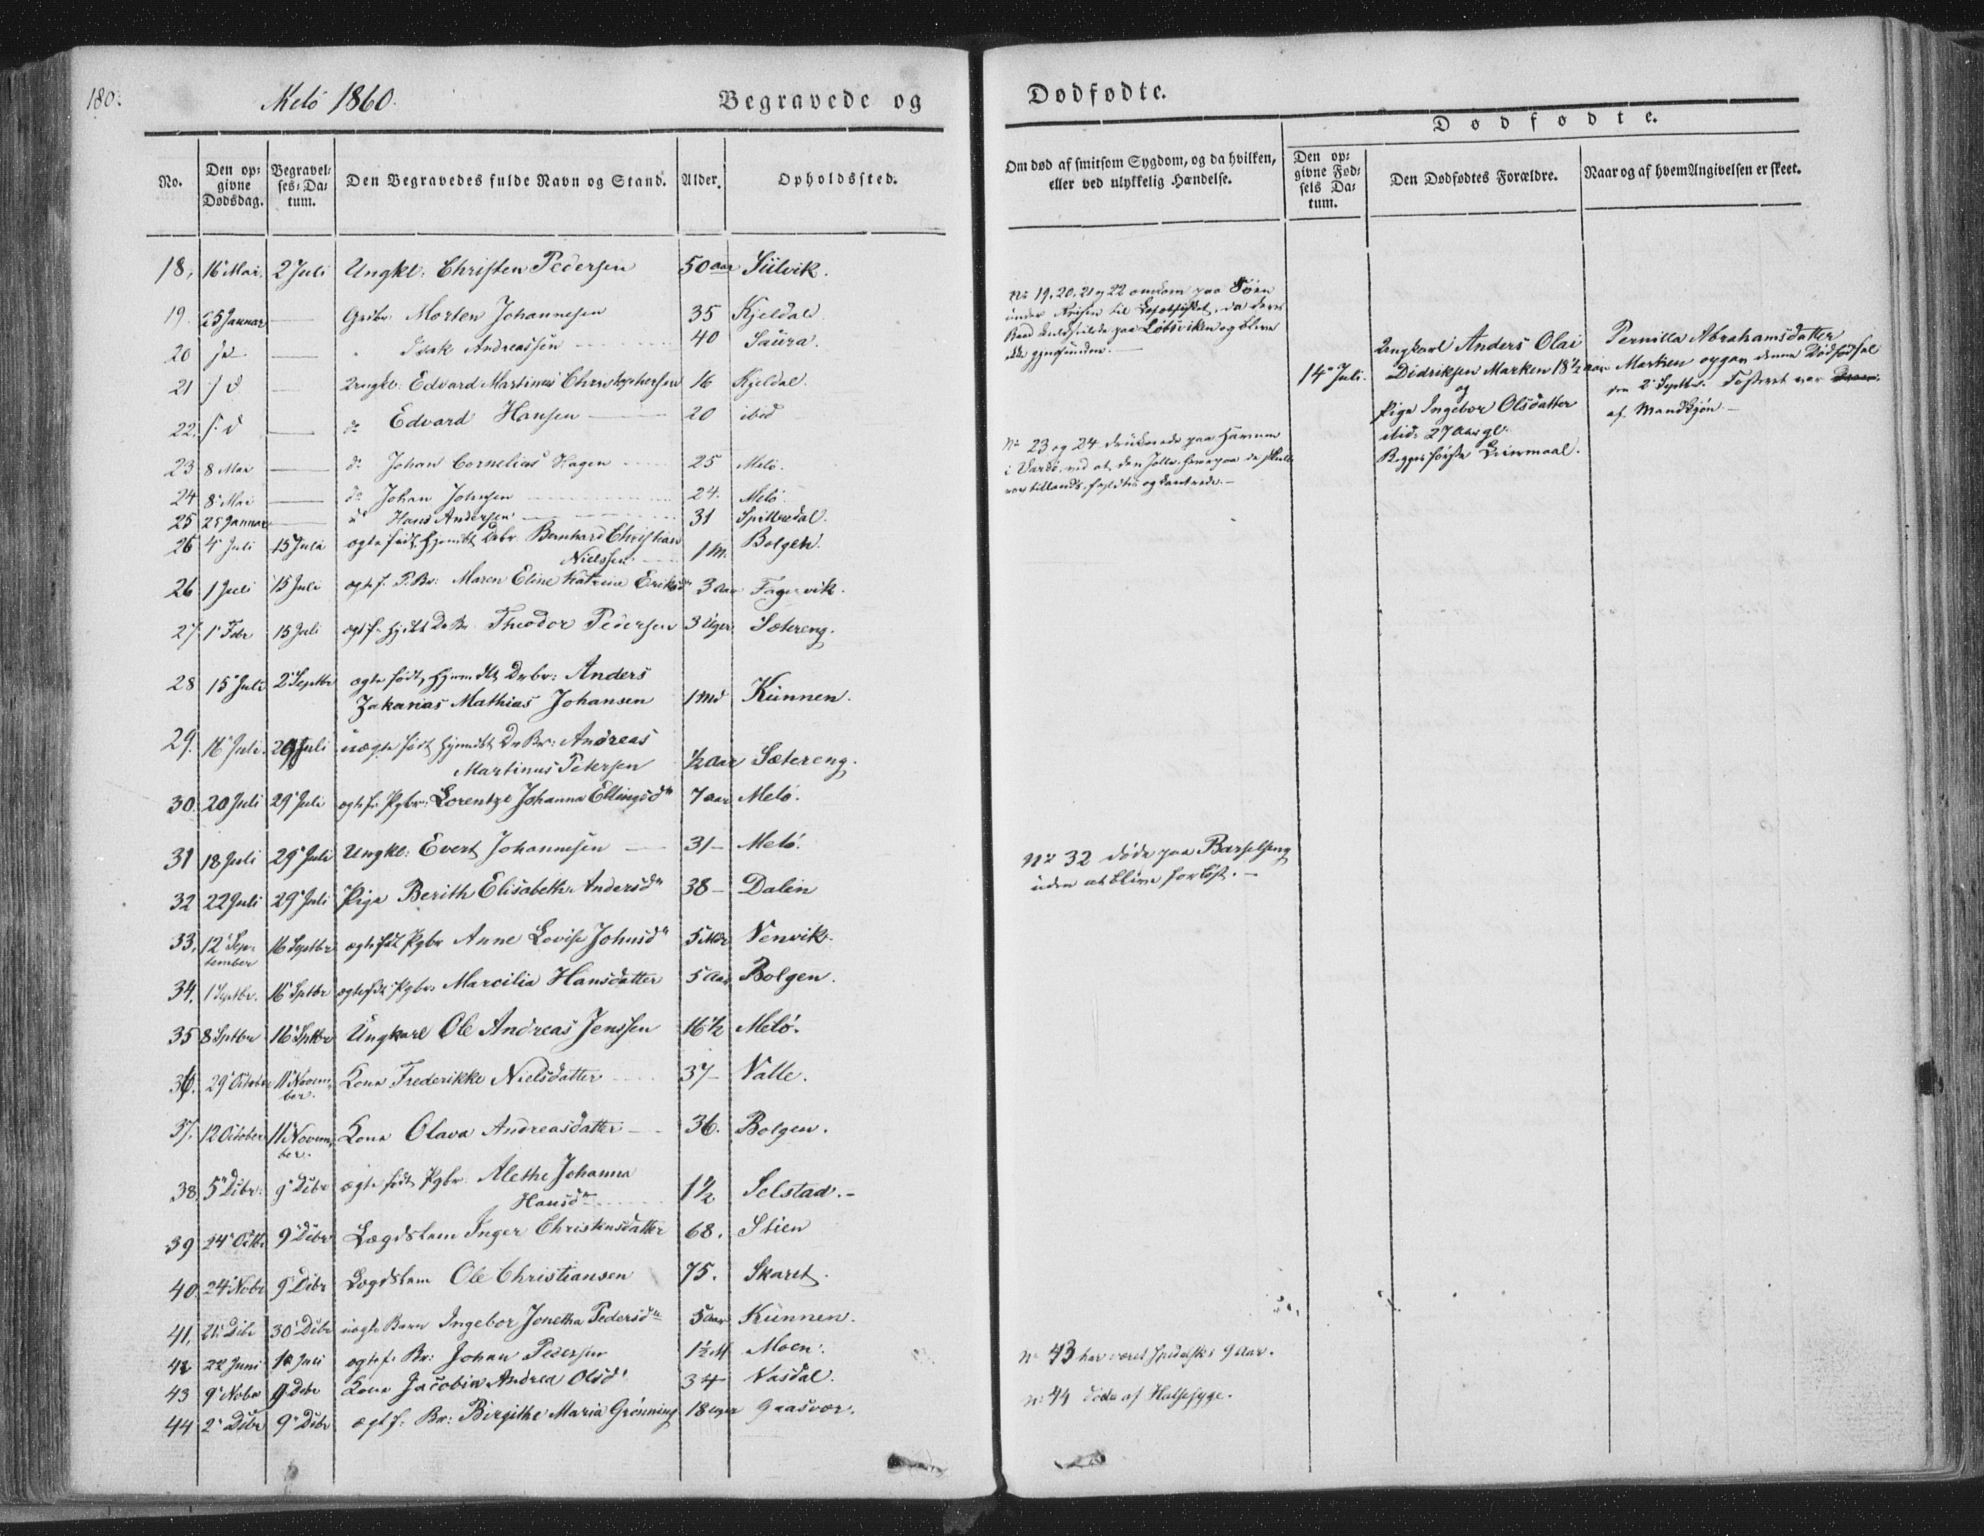 180.
Melö 1860.
Begravede og
Dødfødte.
No.
Den op-
givne
Dødsdag.
Begravel-
ses-Da-
tum.
Den Begravedes fulde Navn og Stand.
Alder.
Opholdssted.
Om død af smitsom Sygdom, og da hvilken,
eller ved ulykkelig Hændelse.
Dødfødte.
Den op-
givne Fød-
sels Da-
tum.
Den Dødfødtes Forældre.
Naar og af hvem Angivelsen er skeet.
18. 16 Mai. 2 Juli Ungkl. Christen Pedersen 50 aar Siilvik.
19. 25 Januar Gbr. Morten Johannesen 35 Kjeldal
20 Isak Andreassen 40 Saura.
21 Ungkl. Edvard Martinus Christophersen 16 Kjeldal.
22. do Edvard Hansen 20 ibid
23 8 Mai do Johan Cornelius Hagen 25 Melö.
24 8 Mai do Johan Johnsen 24. Melö.
25 25 Januar do Hans Andersen 31 Spilderdal.
26 4 Juli 15 Juli ægte født, hjemdbt Drbr. Bernhard Christian
Nielssen 1 M. Bolgen.
26 1 Juli 15 Juli ægte f. P.Br: Maren Eline Katrina Eriksdr 3 aar Fagervik.
27. 1 Febr 15 Juli ægte f. hjdbt DrBr Theodor Pedersen 3 Uger Sætereng.
28 15 Juli 2 Septbr ægte født, hjemdbt Drbr: Anders
Zakarias Mathias Johansen 1 Md Kunnen.
29. 16 Juli. 29 Juli uægte født hjemdbt DrBr: Andreas
Martinus Petersen ½ aar Sætereng.
30. 20 Juli 29 Juli ægte f. Pgbr: Lorentze Johanna Ellingsdr 7 aar Melö.
31 18 Juli 29 Juli Ungkl: Evert Johannesen 31 — Melö.
32 22 Juli 29 Juli Pige Berith Elisabeth Andersdr 38 — Dalen
33. 12 Sep-
tember 16 Septbr ægte fdt Pgbr Anne Lovise Johnsdr 5 Venvik.
34. 1 Septbr. 16 Septbr ægte fdt Pgbr. Marcilia Hansdatter 5 aar Bolgen.
35 8 Septbr 16 Septbr Ungkarl Ole Andreas Jenssen 16½ Melö.
36. 29 October 11 Novem-
ber. Kone Frederikke Nielsdatter 37 — Valle.
37. 12 October 11 Novem-
ber. Kone Olava Andreasdatter 36. Bolgen.
38. 5 Dcbr. 9 Dcbr ægte født Pgbr. Alethe Johanna
Hansdr 1½ Selstad. —
39 24 Octbr 9 Dcbr Lægdslem Inger Christensdatter 68. Stien
40. 24 Nobr 9 Dcbr Lægdslem Ole Christiansen 75. Skaret.
41. 21 Dcbr 30 Dcbr uægte Barn Ingebor Jonetha Pedersdr 5 aar Kunnen.
42 22 Juni 1 Juli ægte f. Br: Johan Pedersen 1½ M Moen.
43 9 Nobr 9 Dcbr Kone Jacobia Andrea Olsdr 34 Vasdal.
44 2 Dcbr 9 Dcbr ægte f: Br: Birgithe Maria Grönning 18 uger Gaasvær.
No 19, 20, 21 og 22 omkom paa Söen
under Reisen til Lofotfisket, da deres
Baad kuldseilede paa Löbsviken og bleve
ikke gjenfundne. —
No 23 og 24 druknede paa Havnen
i Vardö, ved at den Jolle, hvorpaa de skulle
roe tillands,
No 32 døde paa Barselseng
uden at blive forløst. —
No 43 har været spedalsk i 9 Aar.
No 44 døde af Halssyge.
14 Juli.
Ungkarl Anders Olai
Didriksen Marken 18½ aar
og
Pige Ingebor Olsdatter
ibid. 27 Aar gl.
Begges første Leiermaal.
Pernilla Abrahamsdatter
Marken opgav denne Dødfødsel
den 2 Septbr. Fosteret var
af Mandkjøn. —